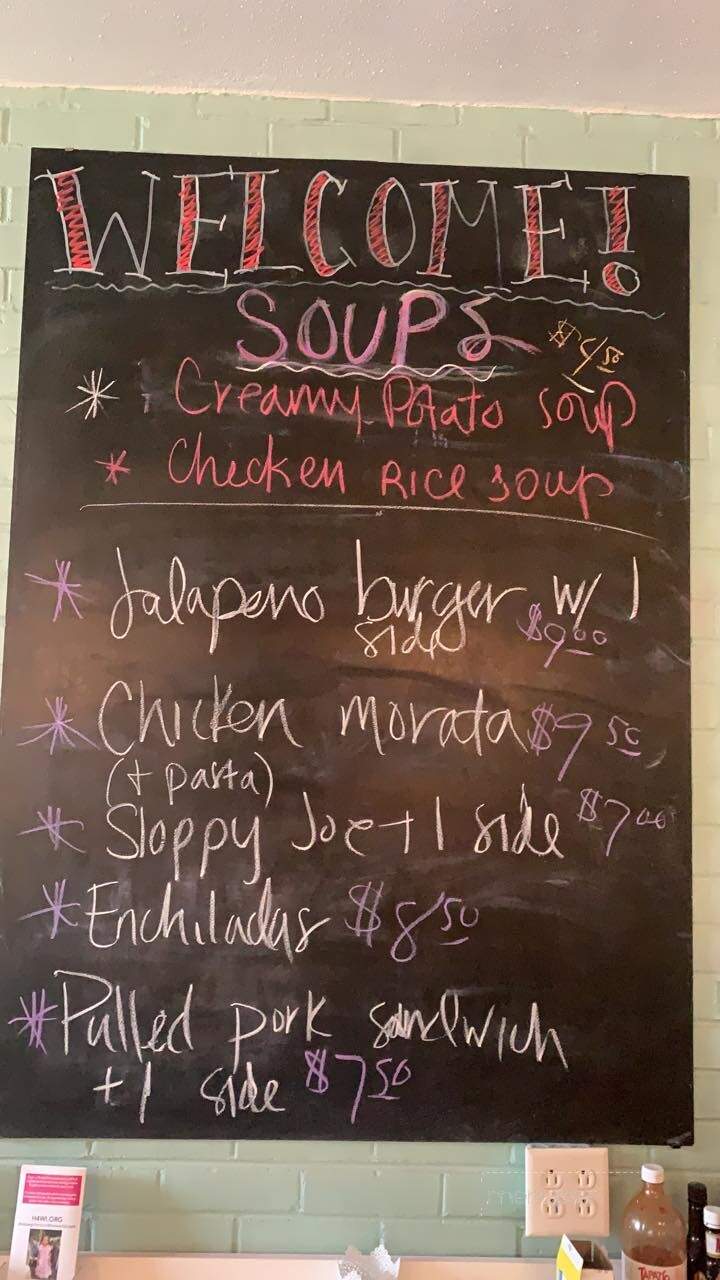 WELCOME!
SOUPS $4.50
* Creamy Potato soup
* Chicken RICE soup
* Jalapeno burger w/ 1
side $9.00
* Chicken morata $9.50
(+ pasta)
* Sloppy Joe + 1 side $7.00
* Enchiladas $8.50
* Pulled pork sandwich
+ 1 side $7.50
H4WI.ORG
TAPATÍO